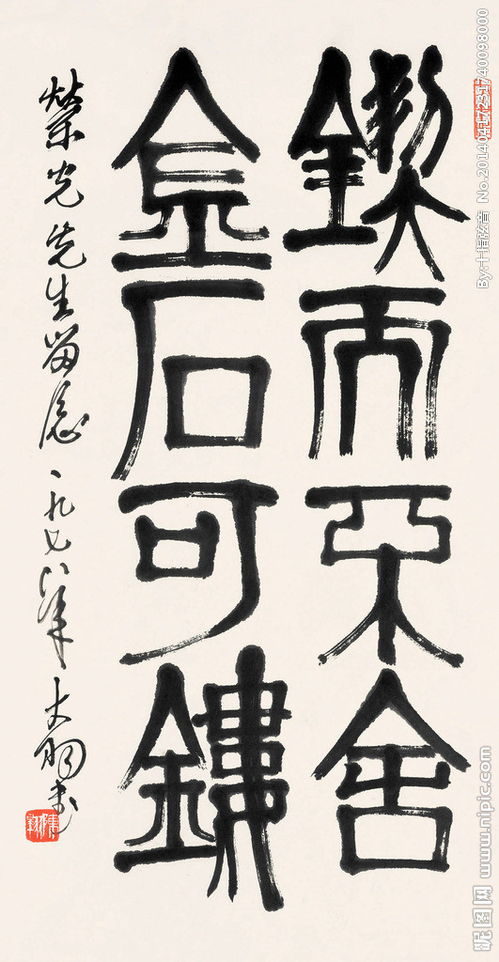 鍥而不舍
金石可鏤
榮光先生留念 一九七八年 大羽書
By:十指弦音 No.20140417231740098000
昵图网 www.nipic.com